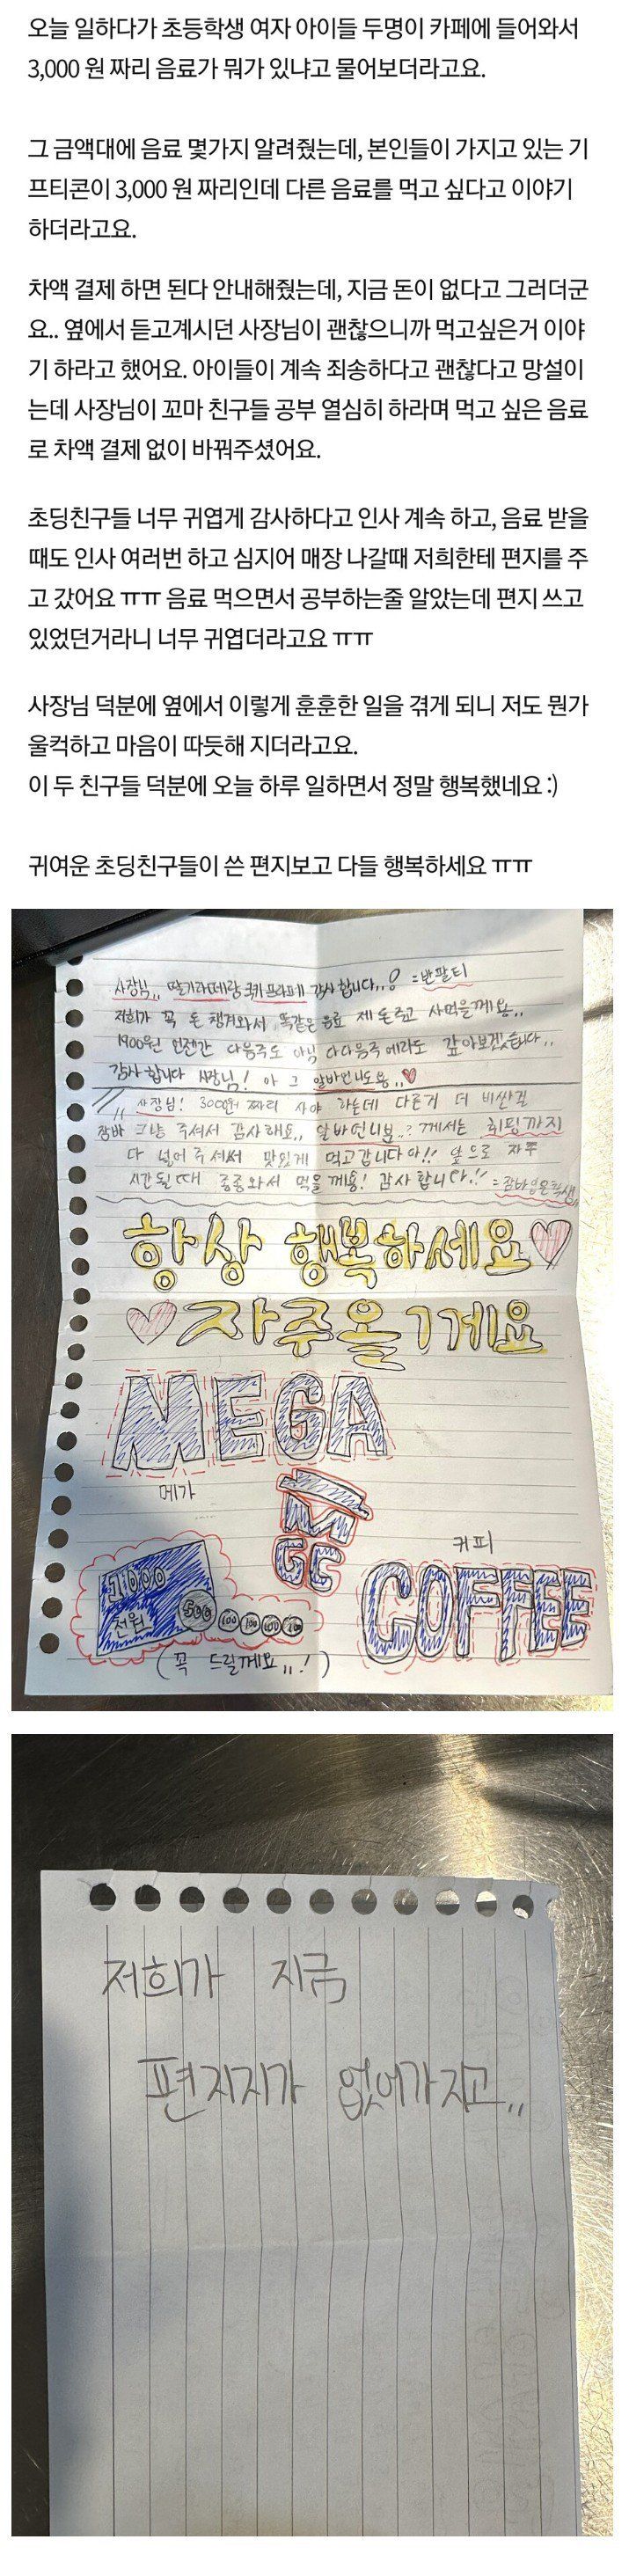 오늘 일하다가 초등학생 여자 아이들 두명이 카페에 들어와서
3,000 원 짜리 음료가 뭐가 있냐고 물어보더라고요.
그 금액대에 음료 몇가지 알려줬는데, 본인들이 가지고 있는 기
프티콘이 3,000 원 짜리인데 다른 음료를 먹고 싶다고 이야기
하더라고요.
차액 결제 하면 된다 안내해줬는데, 지금 돈이 없다고 그러더군
요.. 옆에서 듣고계시던 사장님이 괜찮으니까 먹고싶은거 이야
기 하라고 했어요. 아이들이 계속 죄송하다고 괜찮다고 망설이
는데 사장님이 꼬마 친구들 공부 열심히 하라며 먹고 싶은 음료
로 차액 결제 없이 바꿔주셨어요.
초딩친구들 너무 귀엽게 감사하다고 인사 계속 하고, 음료 받을
때도 인사 여러번 하고 심지어 매장 나갈때 저희한테 편지를 주
고 갔어요 ㅠㅠ 음료 먹으면서 공부하는줄 알았는데 편지 쓰고
있었던거라니 너무 귀엽더라고요 ㅠㅠ
사장님 덕분에 옆에서 이렇게 훈훈한 일을 겪게 되니 저도 뭔가
울컥하고 마음이 따듯해 지더라고요.
이 두 친구들 덕분에 오늘 하루 일하면서 정말 행복했네요 :)
귀여운 초딩친구들이 쓴 편지보고 다들 행복하세요 ㅠㅠ
사장님,, 딸기라떼랑 쿠키프라페 감사합니다,,! =반팔티
저희가 꼭 돈 챙겨와서 똑같은 음료 제 돈주고 사먹을께요,,
1900원 언젠간 다음주도 아님 다다음주에라도 갚아보겠습니다,,
감사합니다 사장님! 아 그 알바언니도용,,♥
사장님! 3000원 짜리 사야 하는데 다른거 더 비싼걸
그냥 주셔서 감사해요,, 알바언니분..? 께서는 휘핑까지
다 넣어주셔서 맛있게 먹고갑니다아!! 앞으로 자주
시간될때 종종와서 먹을께용! 감사합니다!!
항상 행복하세요♥
♥자주올게요
MEGA
메가
M
GC
커피
COFFEE
1000
천원
500
100 100 100 100
(꼭 드릴께요,,!)
저희가 지금
편지지가 없어가지고,,